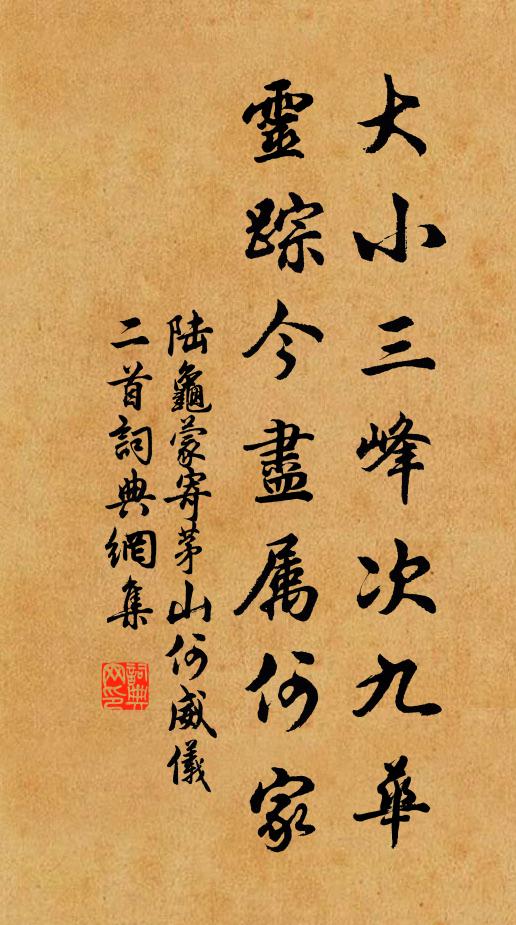 大小三峰次九華
靈踪今盡属何家
陆龜蒙寄茅山何威儀
二首詞典網集
詞典网印